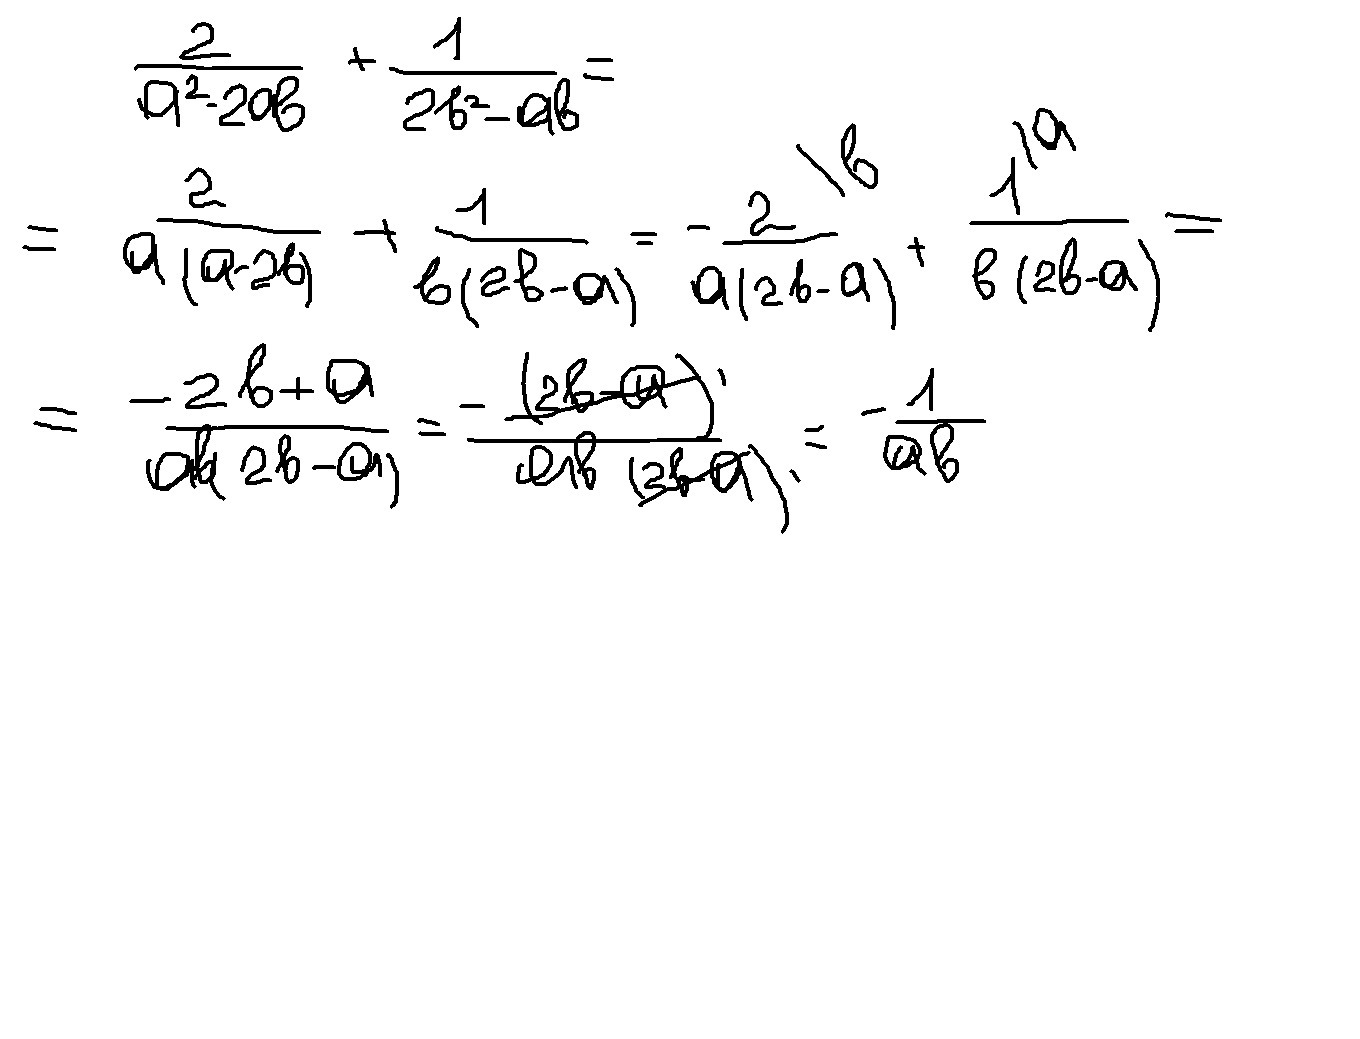 2/(a²-2ab) + 1/(2b²-ab) =
= 2/(a(a-2b)) + 1/(b(2b-a)) = -2\b/(a(2b-a)) + 1\a/(b(2b-a)) =
= (-2b+a)/(ab(2b-a)) = -(2b-a)'/(ab(2b-a)') = -1/(ab)